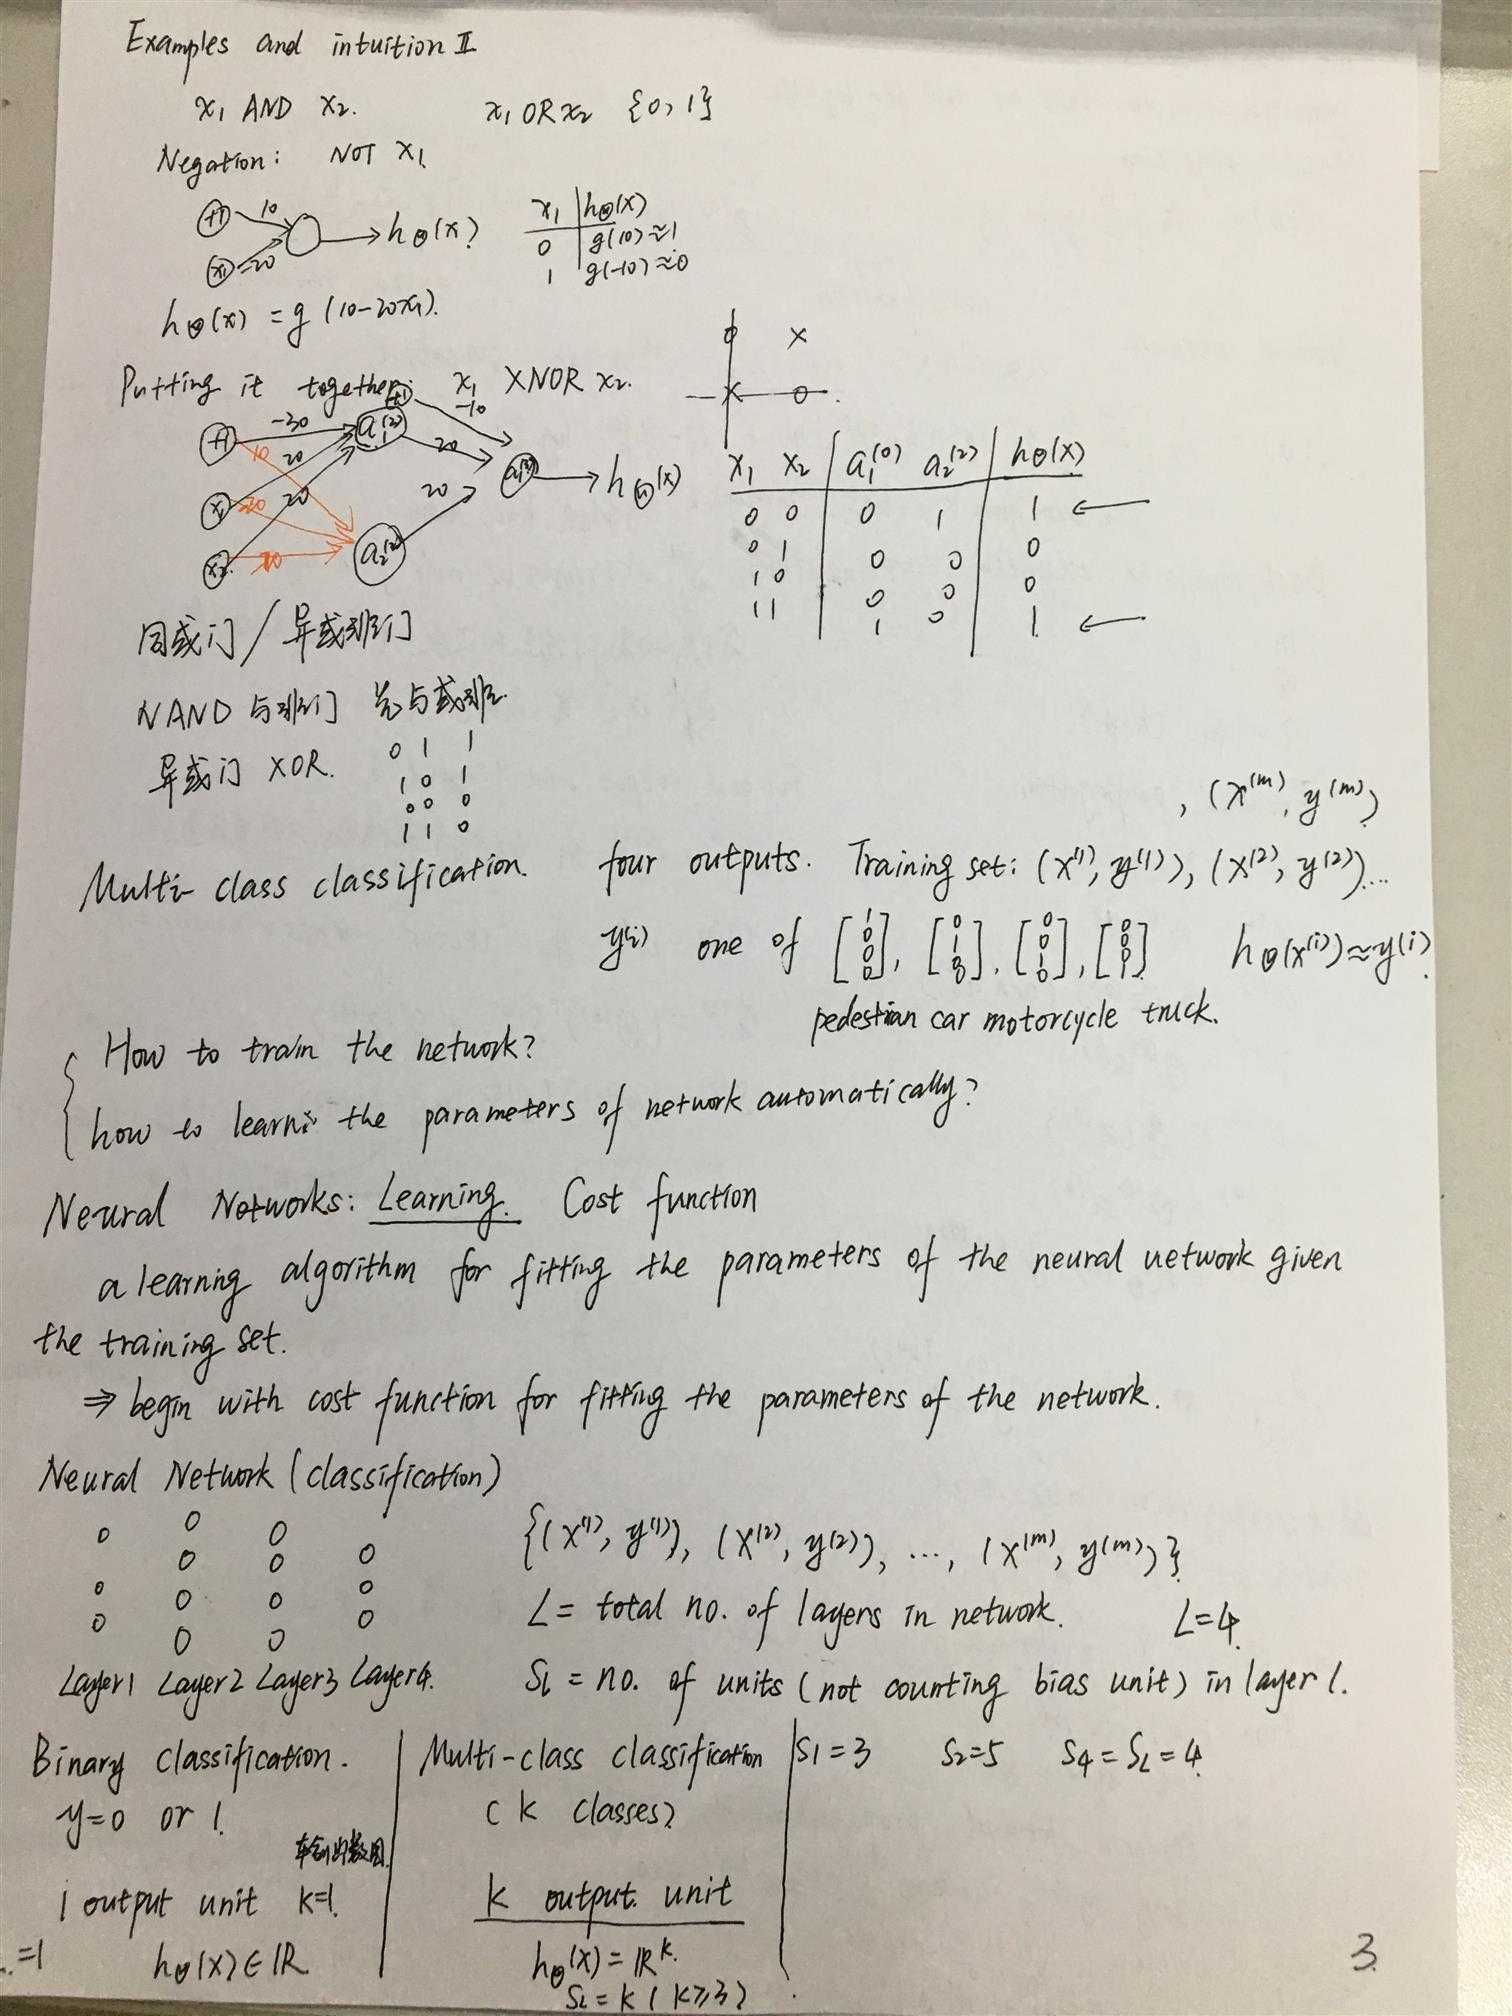 Examples and intuition II
x₁ AND x₂. x₁ OR x₂ {0, 1}
Negation: NOT x₁
+1 10 → hΘ(x) x₁ | hΘ(x)
x₁ -20 0 | g(10)≈1
1 | g(-10)≈0
hΘ(x) = g(10-20x₁).
Putting it together: x₁ XNOR x₂.
+1 -10
+1 -30 a₁⁽²⁾ 20
10 20
x₁ 20 20 a₁⁽³⁾ → hΘ(x)
x₂ a₂⁽²⁾ 20
x₁ x₂ | a₁⁽⁰⁾ a₂⁽²⁾ | hΘ(x)
0 0 | 0 1 | 1 ←
0 1 | 0 0 | 0
1 0 | 0 0 | 0
1 1 | 1 0 | 1 ←
同或门/异或非门
NAND 与非门 先与或非
异或门 XOR.
0 1 1
1 0 1
0 0 0
1 1 0
Multi-class classification. four outputs. Training set: (x⁽¹⁾, y⁽¹⁾), (x⁽²⁾, y⁽²⁾)... , (x⁽ᵐ⁾, y⁽ᵐ⁾)
y⁽ⁱ⁾ one of [1 0 0 0], [0 1 0 0], [0 0 1 0], [0 0 0 1] hΘ(x⁽ⁱ⁾)≈y⁽ⁱ⁾
pedestrian car motorcycle truck.
How to train the network?
how to learn the parameters of network automatically?
Neural Networks: Learning. Cost function
a learning algorithm for fitting the parameters of the neural network given
the training set.
⇒ begin with cost function for fitting the parameters of the network.
Neural Network (classification)
{(x⁽¹⁾, y⁽¹⁾), (x⁽²⁾, y⁽²⁾), ..., (x⁽ᵐ⁾, y⁽ᵐ⁾)}
L = total no. of layers in network. L=4.
Layer1 Layer2 Layer3 Layer4. Sl = no. of units (not counting bias unit) in layer l.
S₁=3 S₂=5 S₄=SL=4.
Binary classification.
y=0 or 1.
1 output unit k=1.
hΘ(x)∈ℝ
=1
Multi-class classification
(k classes)
k output. unit
hΘ(x)=ℝᵏ.
SL=k (k≥3)
3.